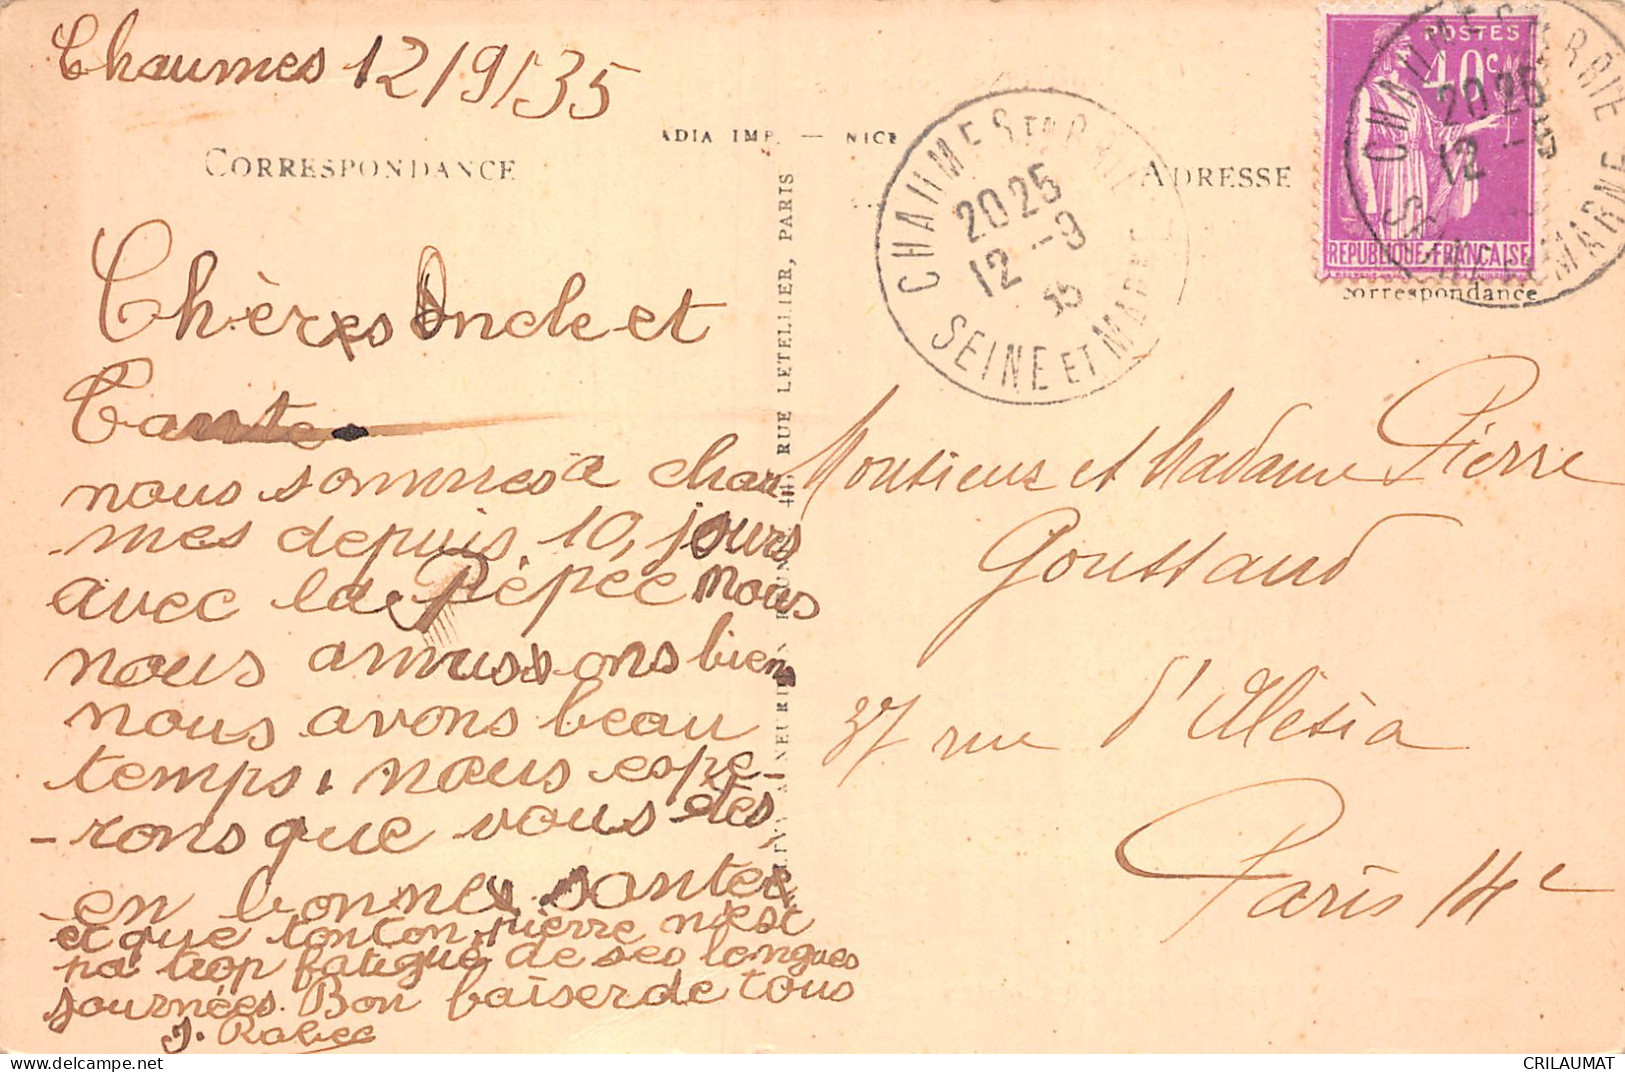 Chaumes 12/9/35
ADIA IMP. — NICE
CORRESPONDANCE
ADRESSE
POSTES
40c
REPUBLIQUE-FRANÇAISE
correspondance
CHAUMES EN BRIE
20 25
12 -9
35
SEINE ET MARNE
CHAUMES EN BRIE
20 25
12 -9
SEINE ET MARNE
RUE LETELLIER, PARIS
Chères Oncle et
Tante
nous sommes a chau
-mes depuis 10 jours
avec la Pépée nous
nous amussons bien
nous avons beau
temps. nous espe-
-rons que vous êtes
en bonne santée
et que tonton pierre n'est
pa trop fatigué de ses longues
journées. Bon baiser de tous
J. Rabec
Monsieur et Madame Pierre
Goussaud
37 rue d'Alésia
Paris 14e
CRILAUMAT